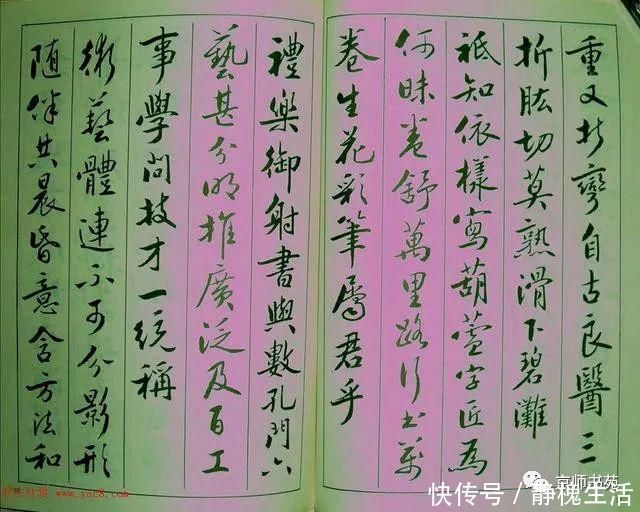 重又打弯自古良醫三
折肱切莫熟滑下碧灘
祗知依樣寫葫蘆字匠為
何昧卷舒萬里路行出萬
卷生花彩筆屬君乎
禮樂御射書與數孔門六
藝甚分明推廣泛及百工
事學問技才一統稱
術藝體連不可分影形
隨伴共晨昏意含方法和
www.yac8.com
京师书苑
快传号/静槐生活